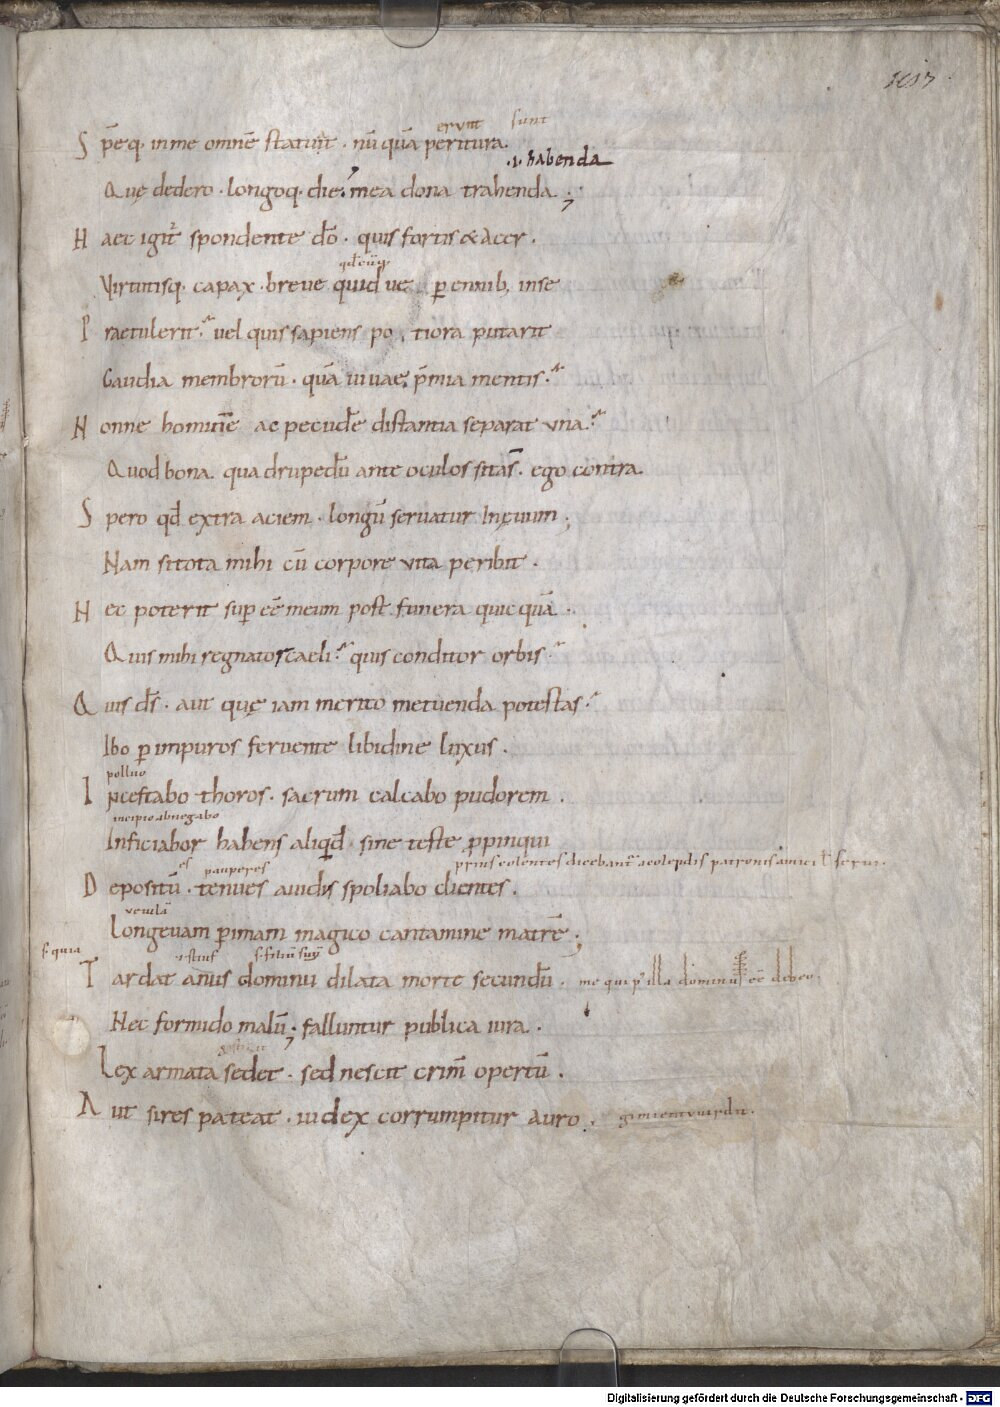 erunt sunt
S pēeq. in me omnē statuit. nū quā peritura.
.i. habenda
Quę dedero. longoq. die. mea dona trahenda;
H aec igit spondente dō. quis fortis & Acer.
qdcūq.
Virtutisq. capax. breve quid ue p ennib; inse
P raetulerit. vel quis sapiens po tiora putarit
Gaudia membrorū. quā uiuae pmia mentis.
N onne hominē ac pecudē distantia separat una.
Quod bona quadrupedū ante oculos sita st. ego contra.
S pero qd extra aciem. longū seruatur In ęvum;
Nam si tota mihi cū corpore vita peribit.
N ec poterit sup eē meum post funera quic quā.
Quis mihi regnator caeli. quis conditor orbis
Q uis ds. aut quę iam merito metuenda potestas.
Ibo p impuros fervente libidine luxus.
polluo
I ncestabo thoros. sacrum calcabo pudorem.
incipio abnegabo
Inficiabor habens aliqd. sine teste ppinqui
es pauperes
D epositū. tenues auidis spoliabo clientes.
vetulā
Longevam pimam magico cantamine matrē;
s. quia
T ardat anus dominū dilata morte secundū. me qui p illā dominus eē debeo.
Nec formido malū; falluntur publica iura.
Lex armata sedet. sed nescit crimn opertū.
A ut si res pateat. iudex corrumpitur auro.
Digitalisierung gefördert durch die Deutsche Forschungsgemeinschaft - DFG